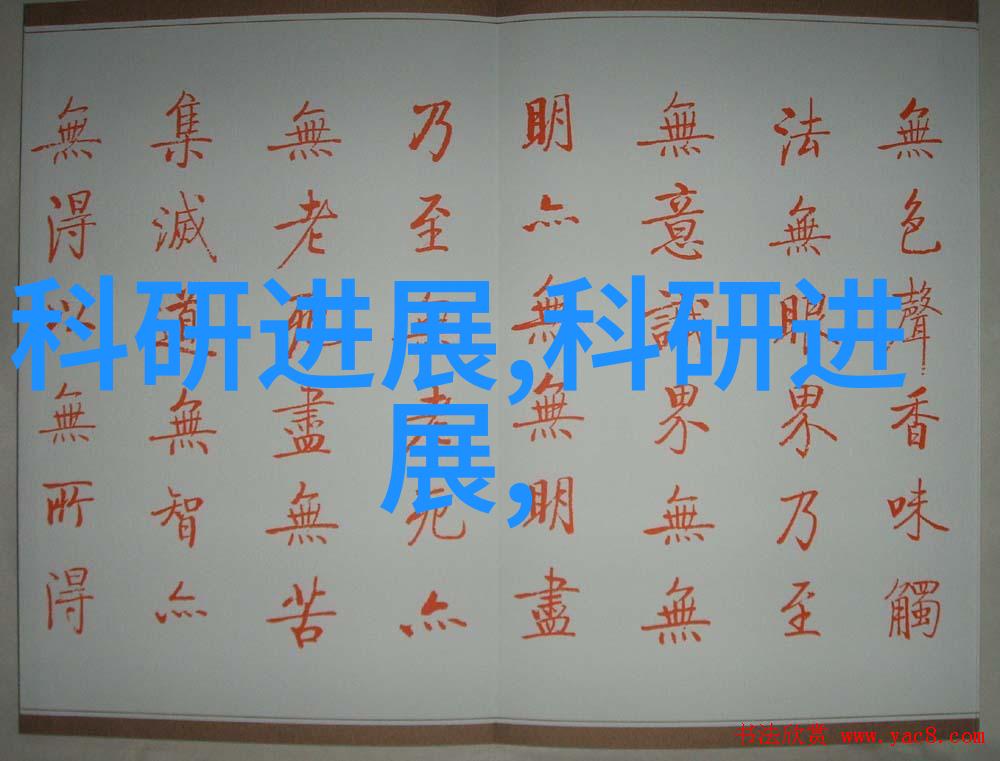 無色聲香味觸
法無眼界乃至
無意識界無無
明亦無無明盡
乃至無老死亦
無老死盡無苦
集滅道無智亦
無得以無所得
科研进展,科研进
展,
书法欣赏 www.yac8.com